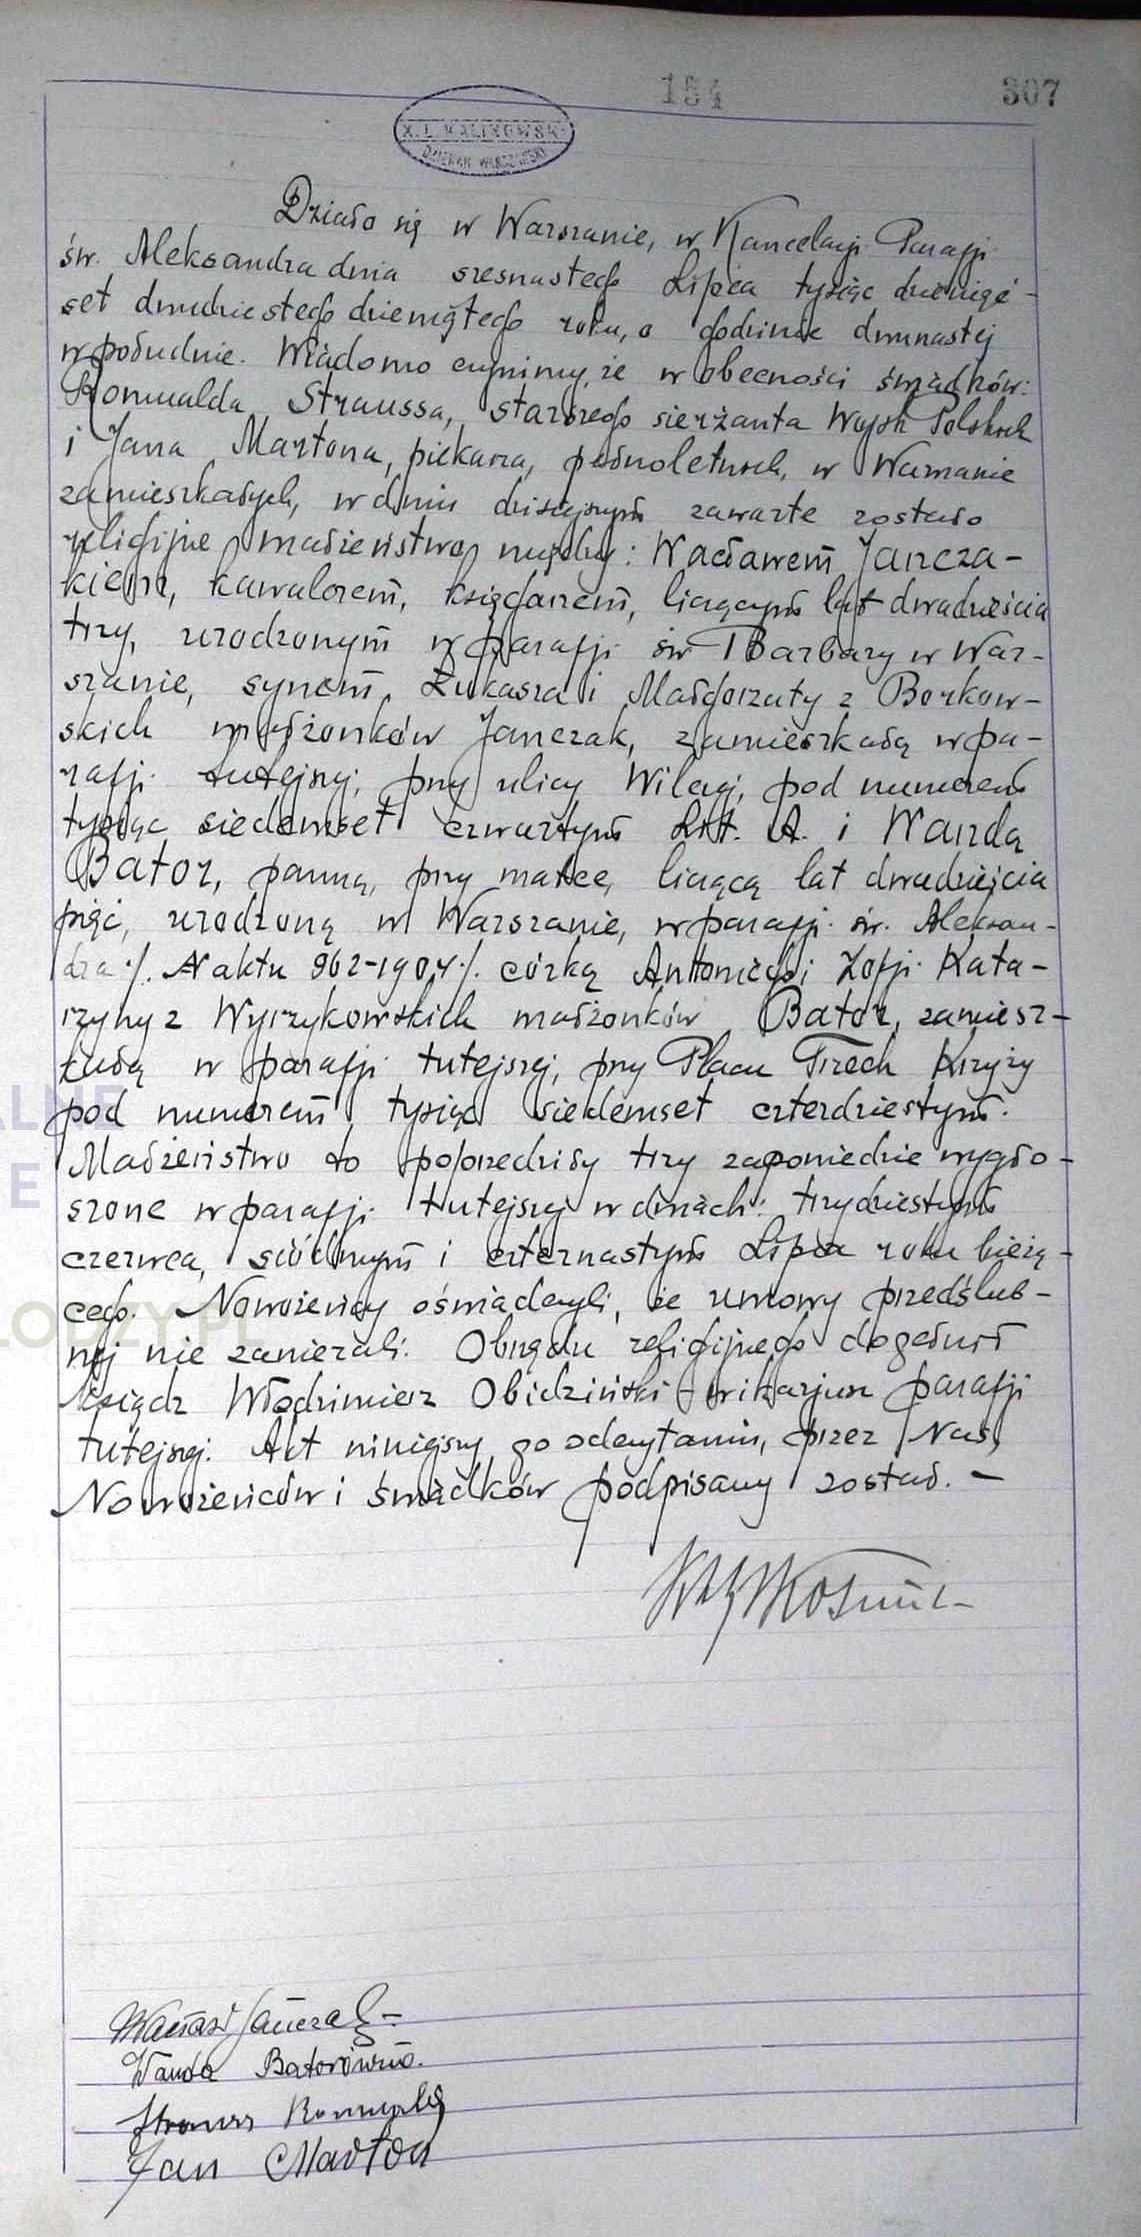 154 307
X. L. MALINOWSKI
DZIEKAN WARSZAWSKI
Działo się w Warszawie, w Kancelarji Parafji
św. Aleksandra dnia szesnastego Lipca tysiąc dziewięć-
set dwudziestego dziewiątego roku, o godzinie dwunastej
w południe. Wiadomo czynimy, że w obecności świadków:
Romualda Straussa, starszego sierżanta Wojsk Polskich
i Jana Martona, piekarza, pełnoletnich, w Warszawie
zamieszkałych, w dniu dzisiejszym zawarte zostało
religijne małżeństwo między: Wacławem Jancza-
kiem, kawalerem, księgarzem, liczącym lat dwadzieścia
trzy, urodzonym w parafji św. Barbary w War-
szawie, synem Łukasza i Małgorzaty z Borkow-
skich małżonków Janczak, zamieszkałą w pa-
rafji tutejszej, przy ulicy Wilczej, pod numerem
tysiąc siedemset czwartym Lit. A. i Wandą
Bator, panną, przy matce, liczącą lat dwadzieścia
pięć, urodzoną w Warszawie, w parafji św. Aleksan-
dra ·/. N aktu 962-1904 ·/. córką Antoniego i Zofji Kata-
rzyny z Wyrzykowskich małżonków Bator, zamiesz-
kałą w parafji tutejszej, przy Placu Trzech Krzyży
pod numerem tysiąc siedemset czterdziestym.
Małżeństwo to poprzedziły trzy zapowiedzie wygło-
szone w parafji tutejszej w dniach: trzydziestym
czerwca, siódmym i czternastym Lipca roku bieżą-
cego. Nowożeńcy oświadczyli, że umowy przedślub-
nej nie zawierali. Obrzędu religijnego dopełnił
Ksiądz Włodzimierz Obidziński - wikarjusz parafji
tutejszej. Akt niniejszy po odczytaniu, przez Nas,
Nowożeńców i świadków podpisany został. —
Wacław Janczak -
Wanda Batorówna.
Strauss Romuald
Jan Marton
ALNE
E
LODZY.PL